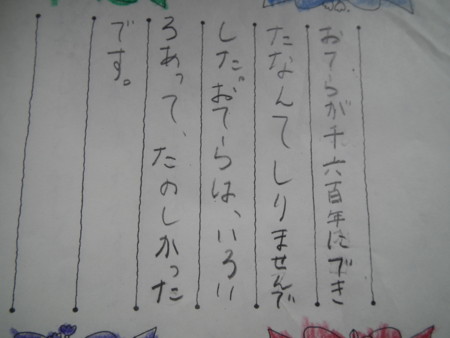 おてらが千六百年にでき
たなんてしりませんで
した。おてらは、いろい
ろあって、たのしかった
です。